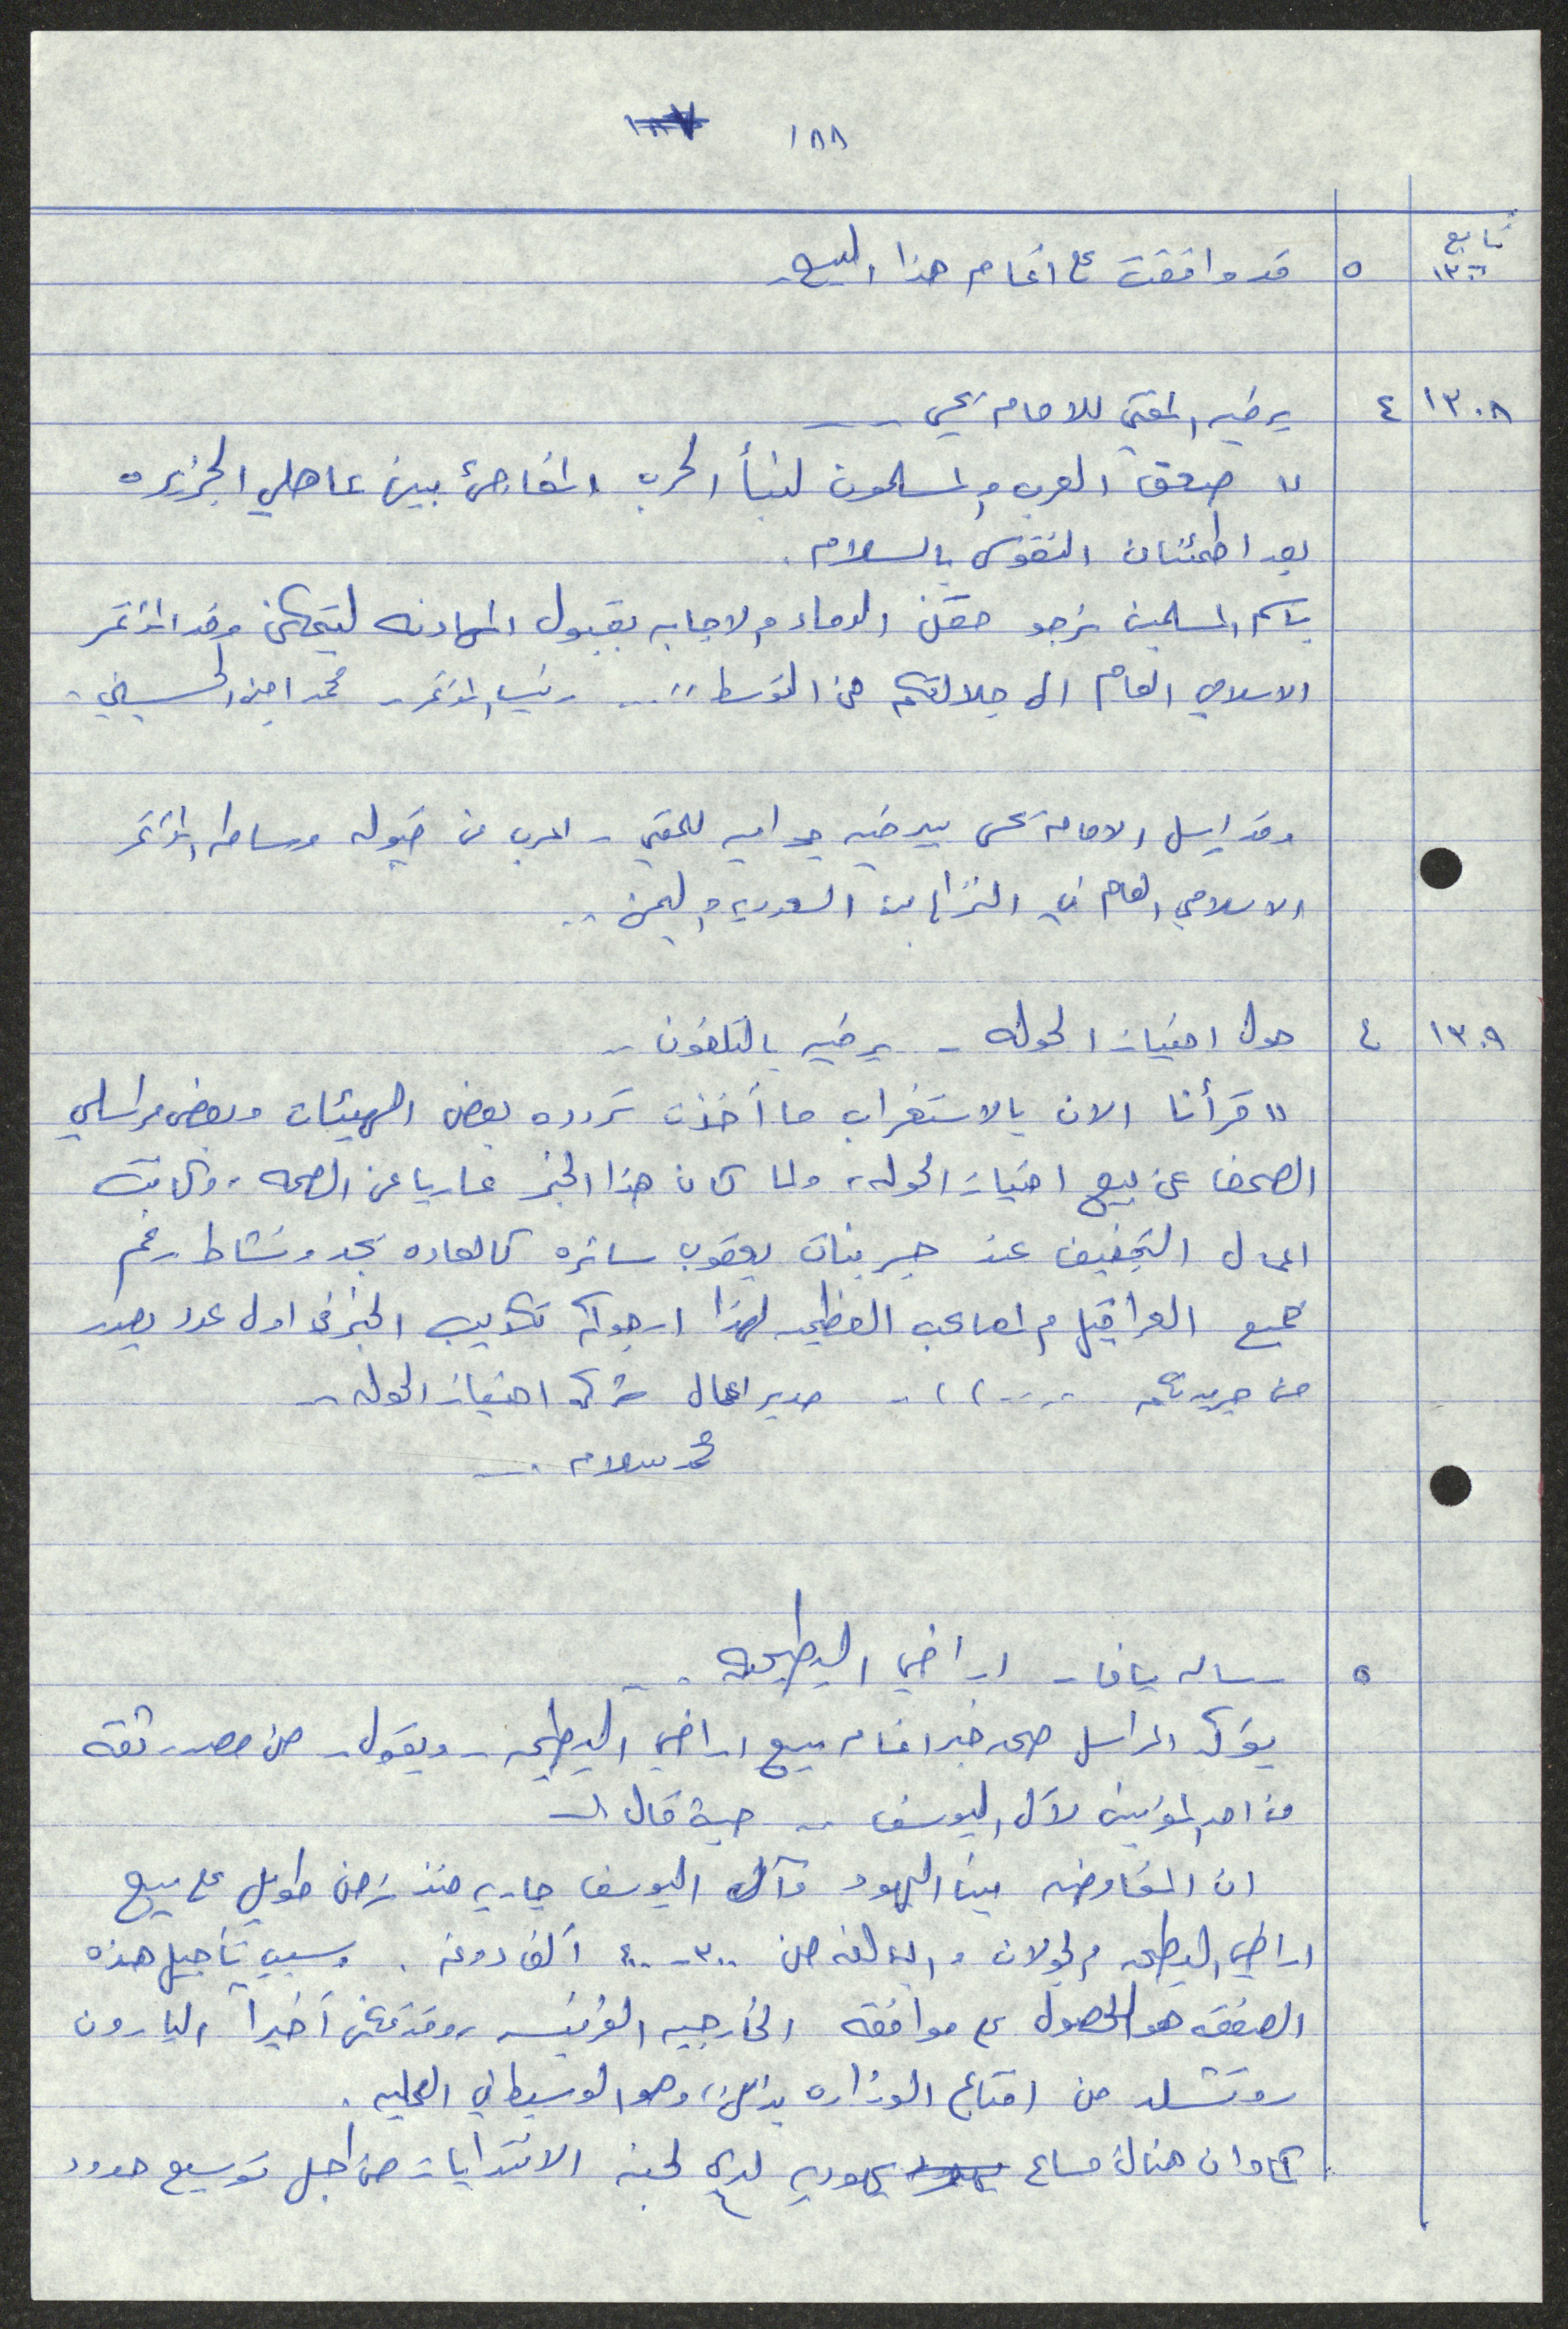 ١٨٨
تابع
٥ قد وافقت على اتمام هذا البيع.
١٣٠٨ ٤ برقيه المفتي للامام يحيى ــ
" صعق العرب والمسلمون لنبأ الحرب المفاجئ بين عاهلي الجزيره
بعد اطمئنان النفوس بالسلام.
باسم المسلمين نرجو حقن الدماء والاجابه بقبول المهادنه ليتمكن وفد المؤتمر
الاسلامي العام الى جلالتكم من التوسط " .. رئيس المؤتمر ـ محمد امين الحسيني ـ
وقد ارسل الامام يحيى ببرقيه جوابيه للمفتي ـ اعرب عن قبوله وساطه المؤتمر
الاسلامي العام في النزاع بين السعوديه واليمن ..
١٣٠٩ ٤ حول امتياز الحوله ـ برقيه بالتلفون ..
" قرأنا الان بالاستغراب ما أخذت تردده بعض الهيئات وبعض مراسلي
الصحف عن بيع امتياز الحوله، ولما كان هذا الخبر عاريا عن الصحه، وكانت
اعمال التجفيف عند جسر بنات يعقوب سائره كالعاده بجد ونشاط رغم
جميع العراقيل والمصاعب العظيمه لهذا ارجوكم تكذيب الخبر في اول عدد يصدر
من جريدتكم ..... )) ـ مدير اعمال شركه امتياز الحوله ..
محمد سلام . ــ
٥ رساله يافا ـ اراضي البطيحه . ..
يؤكد المراسل صحه خبر اتمام بيع اراضي البطيحه ـ ويقول ـ من مصدر ثقه
من احد المؤتمنين لآل اليوسف .. حيث قال
ان المفاوضه بين اليهود وآل اليوسف جاريه منذ زمن طويل على بيع
اراضي البطيحه والجولان والبالغه من ٣٠٠ ـ ٤٠٠ الف دونم . وسبب تأجيل هذه
الصفقه هو الحصول على موافقه الخارجيه الفرنسيه، وقد تمكن أخيراً البارون
روتشلد من اقناع الوزاره بذلك، وهو الوسيط في العمليه.
كما وان هنالك مساع يهوديه لدى لجنه الانتدابات من اجل توسيع حدود